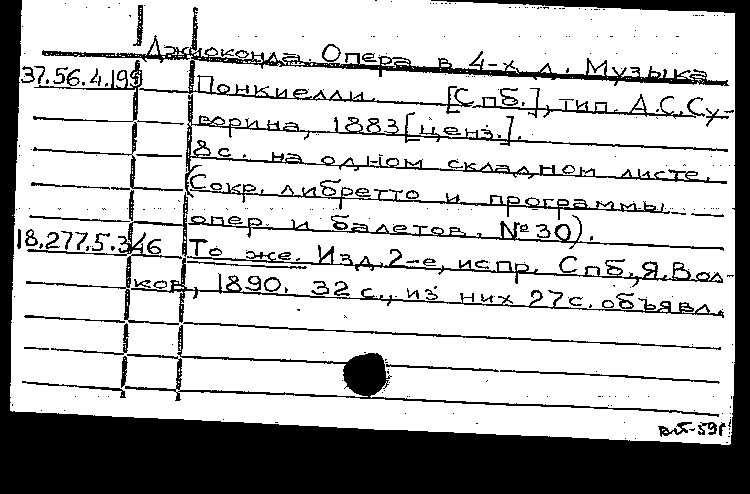 Джиоконда. Опера в 4-х д. Музыка
37.56.4.199 Понкиелли. [Спб.], тип. А.С.Су-
ворина, 1883 [ценз.].
8с. на одном складном листе.
(Сокр. либретто и программы
опер. и балетов. №30).
18.277.5.346 То же. Изд. 2-е, испр. Спб., Я.Вол-
ков, 1890. 32 с., из них 27с. объявл.